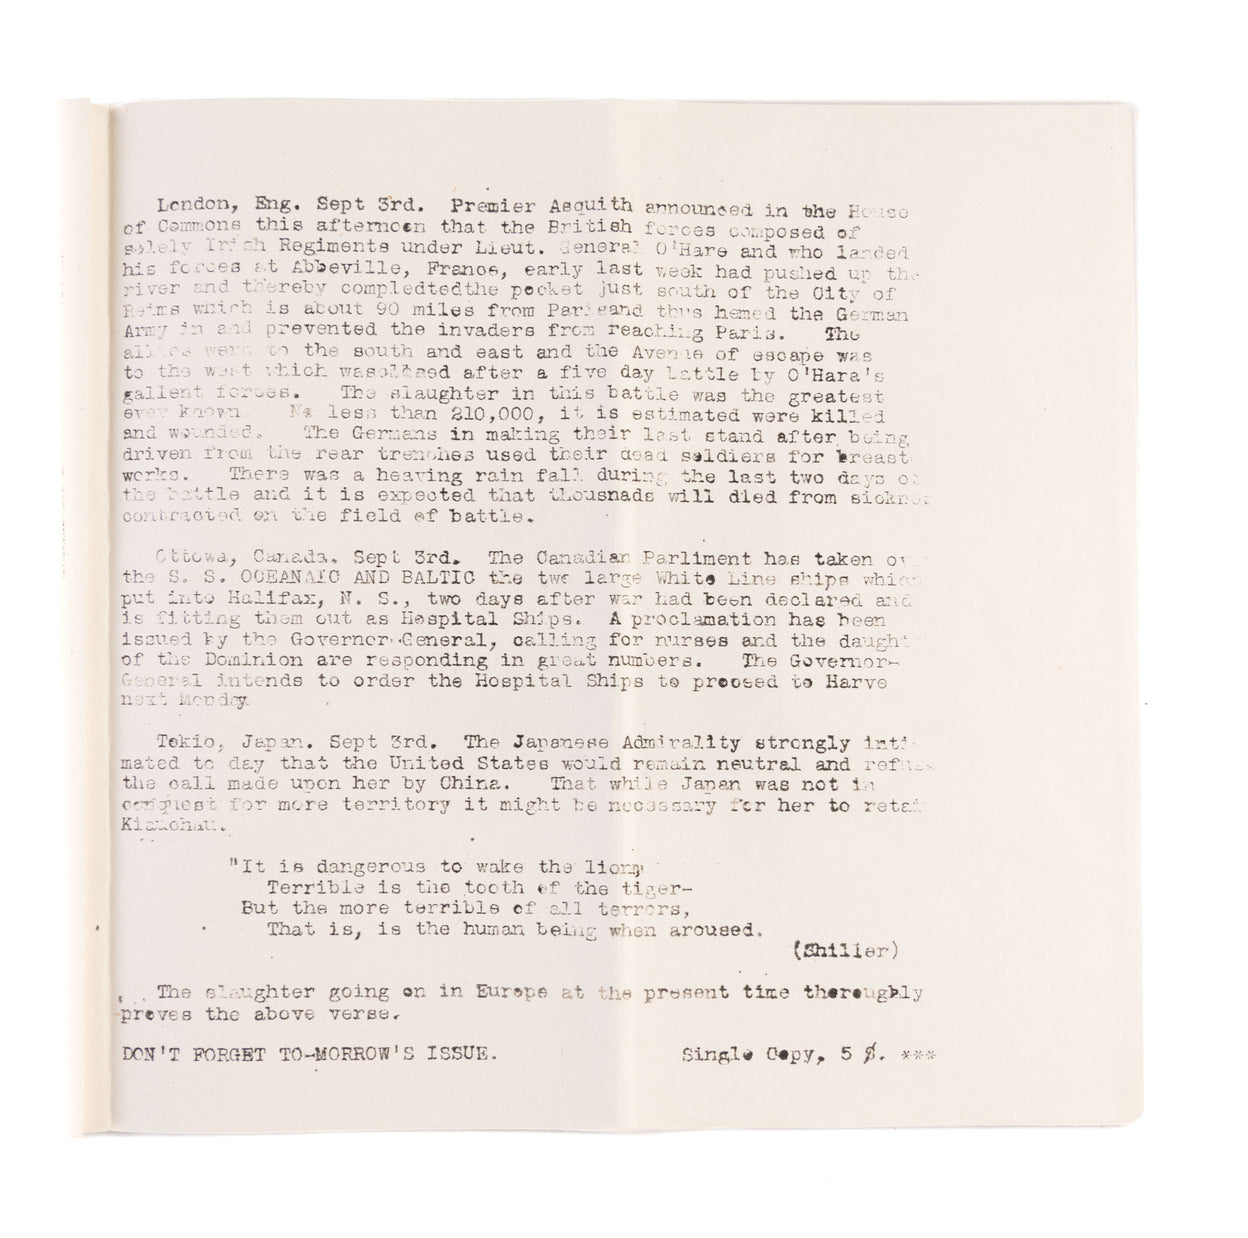 London, Eng. Sept 3rd. Premier Asquith announced in the House
of Commons this afternoon that the British forces composed of
solely Irish Regiments under Lieut. General O'Hare and who landed
his forces at Abbeville, France, early last week had pushed up the
river and thereby compledtedthe pocket just south of the City of
Reims which is about 90 miles from Parisand thus hemed the German
Army in and prevented the invaders from reaching Paris. The
allies were to the south and east and the Avenue of escape was
to the west which was after a five day battle by O'Hara's
gallent forces. The slaughter in this battle was the greatest
ever known. No less than 210,000, it is estimated were killed
and wounded. The Germans in making their last stand after being
driven from the rear trenches used their dead soldiers for breast
works. There was a heaving rain fall during the last two days of
the battle and it is expected that thousnads will died from
contracted on the field of battle.
Ottowa, Canada. Sept 3rd. The Canadian Parliment has taken
the S. S. OCEANAIC AND BALTIC the two large White Line ships which
put into Halifax, N. S., two days after war had been declared and
is fitting them out as Hospital Ships. A proclamation has been
issued by the Governor-General, calling for nurses and the daught
of the Dominion are responding in great numbers. The Governor-
General intends to order the Hospital Ships to proceed to Harve
next Monday
Tokio, Japan. Sept 3rd. The Japanese Admirality strongly inti-
mated to day that the United States would remain neutral and refuse
the call made upon her by China. That while Japan was not in
conquest for more territory it might be necessary for her to retai
Kiauchau.
"It is dangerous to wake the lion
Terrible is the tooth of the tiger-
But the more terrible of all terrors,
That is, is the human being when aroused.
(Shiller)
The slaughter going on in Europe at the present time thoroughly
proves the above verse.
DON'T FORGET TO-MORROW'S ISSUE. Single Copy, 5 ¢. ***